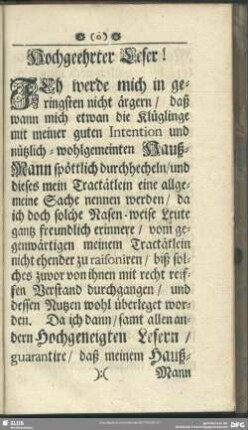 (o)
Hochgeehrter Leser!
ICh werde mich in ge-
ringsten nicht ärgern / daß
wann mich etwan die Klüglinge
mit meiner guten Intention und
nützlich-wohlgemeinten Hauß-
Mann spöttlich durchhecheln/und
dieses mein Tractätlein eine allge-
meine Sache nennen werden / da
ich doch solche Nasen-weise Leute
gantz freundlich erinnere / vom ge-
genwärtigen meinem Tractätlein
nicht ehender zu raisoniren / biß sol-
ches zuvor von ihnen mit recht reif-
fen Verstand durchgangen / und
dessen Nutzen wohl überleget wor-
den. Da ich dann / samt allen an-
dern Hochgeneigten Lesern /
guarantire / daß meinem Hauß-
):( Mann
SLUB